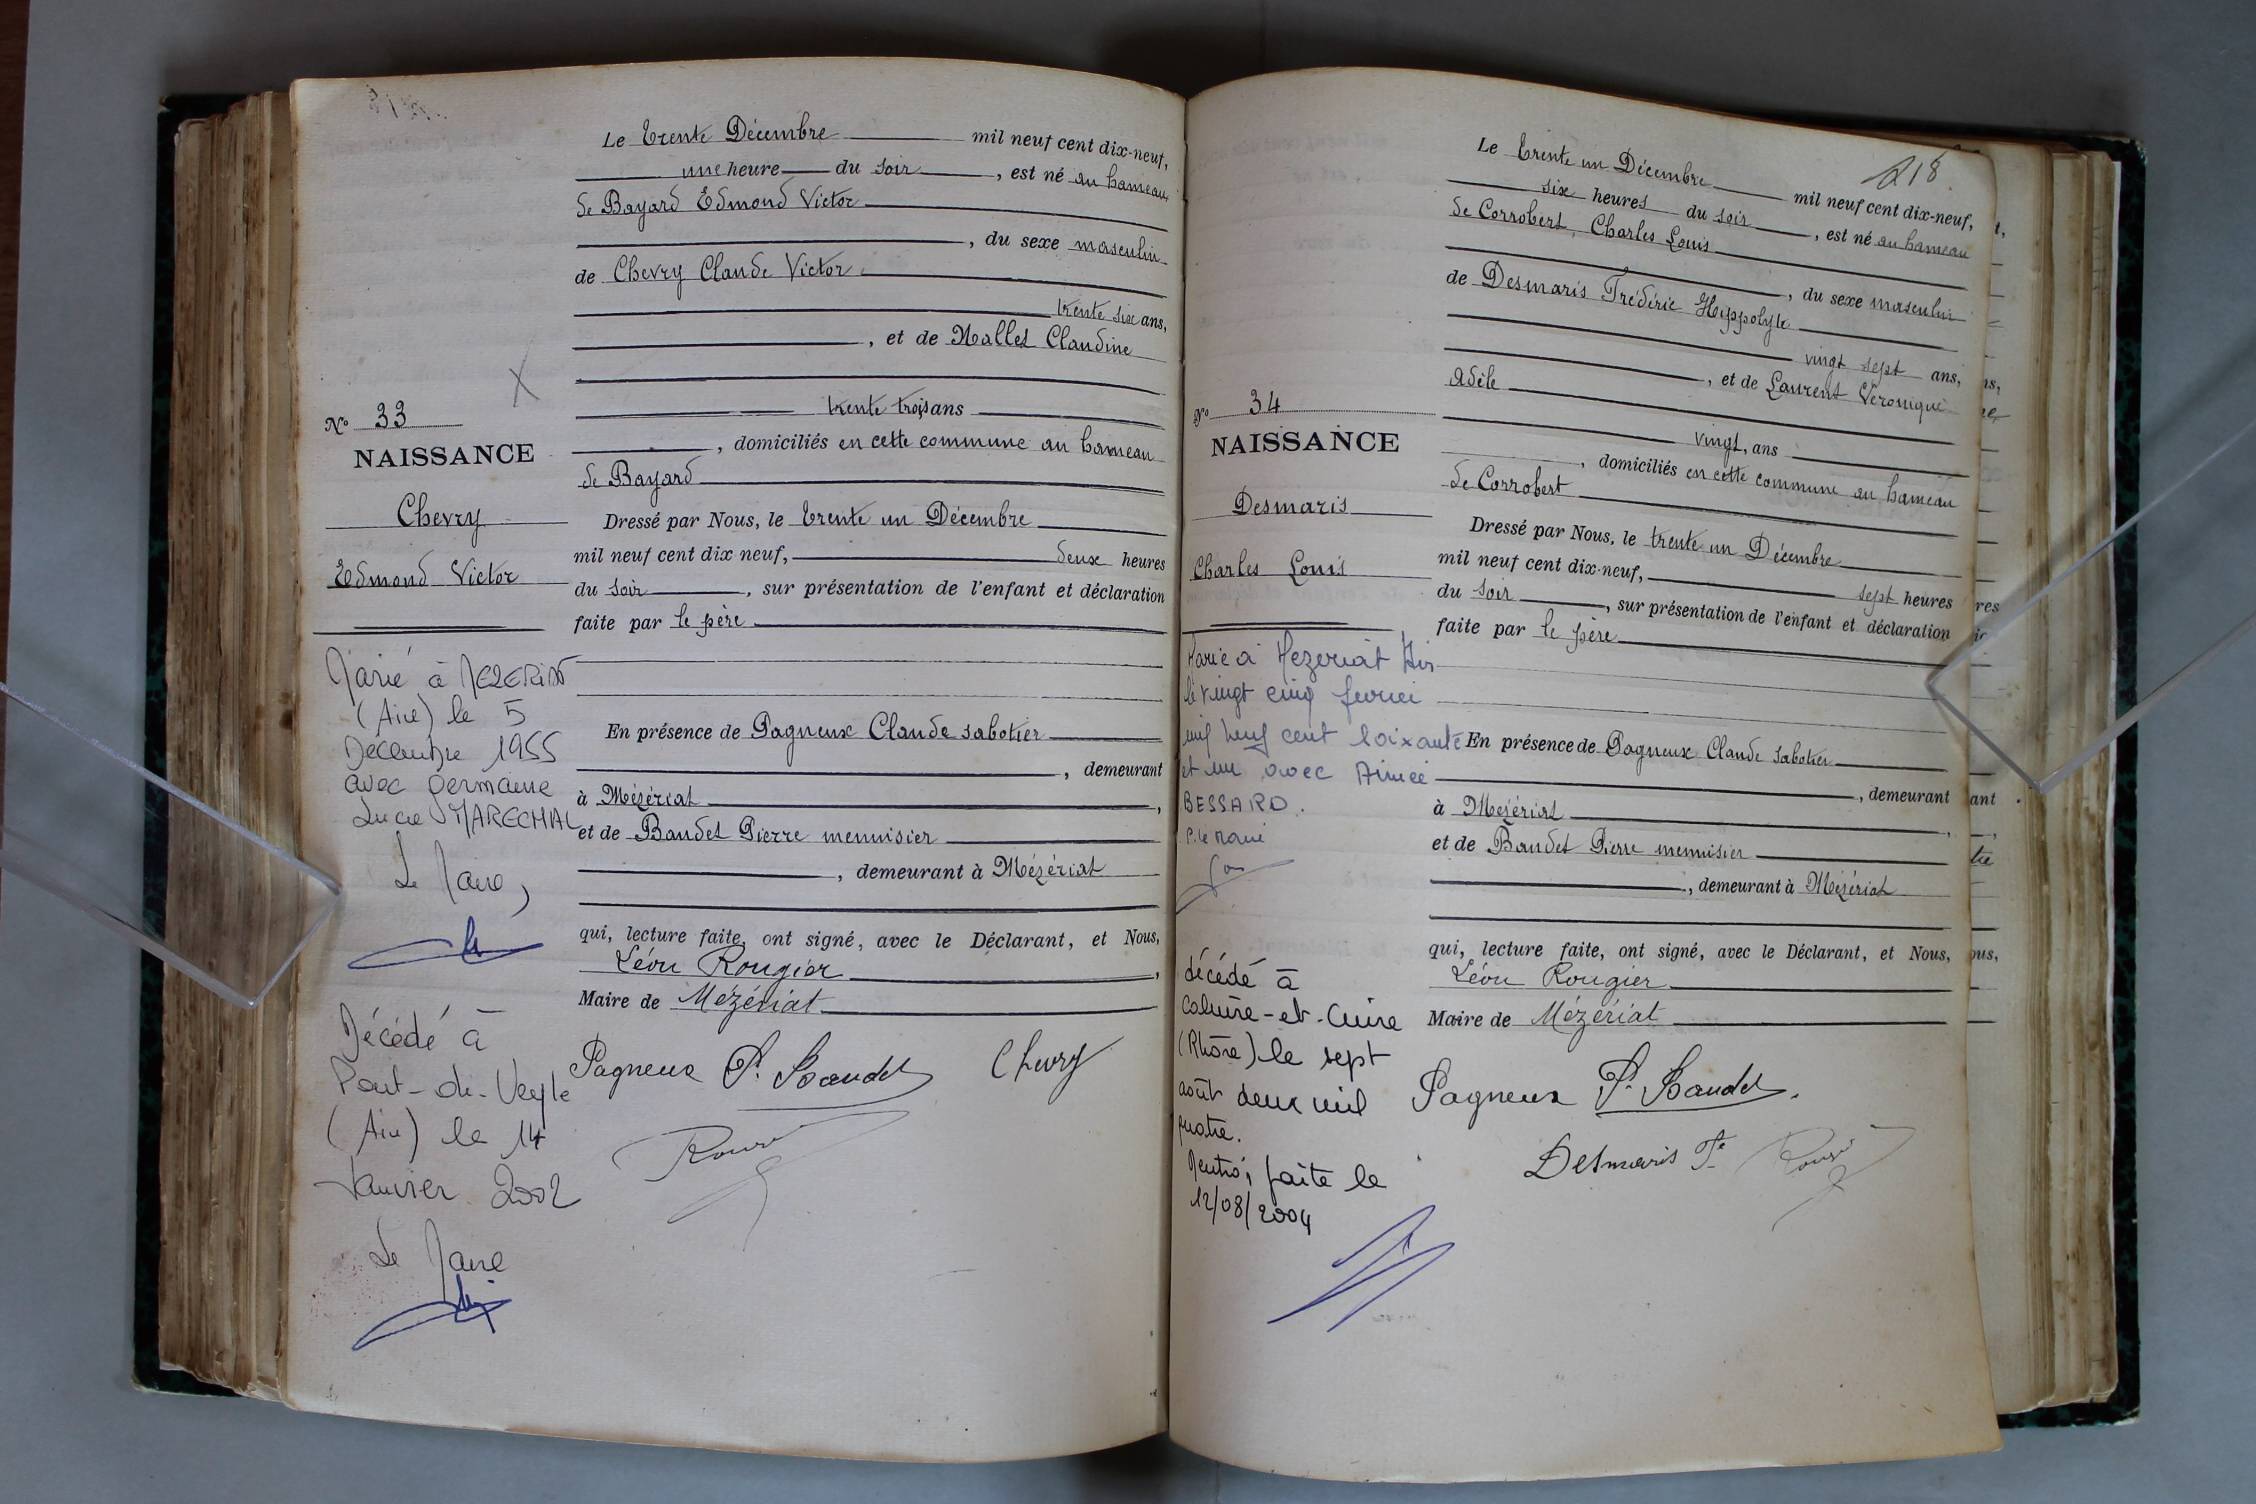 Le trente Décembre mil neuf cent dix-neuf,
une heure du soir, est né au hameau
de Bayard Edmond Victor
, du sexe masculin
de Chevry Claude Victor
trente six ans,
, et de Mallet Claudine
trente trois ans
, domiciliés en cette commune au hameau
de Bayard
Dressé par Nous, le trente un Décembre
mil neuf cent dix neuf, deux heures
du soir, sur présentation de l'enfant et déclaration
faite par le père
En présence de Pagneux Claude sabotier
, demeurant
à Mézériat,
et de Baudet Pierre menuisier
, demeurant à Mézériat
qui, lecture faite, ont signé, avec le Déclarant, et Nous,
Léon Rougier,
Maire de Mézériat
Pagneux P. Baudet Chevry
N° 33
NAISSANCE
Chevry
Edmond Victor
Marié à MEZERIAT
(Ain) le 5
Décembre 1955
avec Germaine
Lucie MARECHAL
Le Maire,
Décédé à
Pont-de-Veyle
(Ain) le 14
Janvier 2002
Le Maire
218
Le trente un Décembre mil neuf cent dix-neuf,
six heures du soir, est né au hameau
de Corrobert, Charles Louis
, du sexe masculin
de Desmaris Frédéric Hyppolyte
vingt sept ans,
, et de Laurent Véronique
Adèle
vingt, ans
, domiciliés en cette commune au hameau
de Corrobert
Dressé par Nous, le trente un Décembre
mil neuf cent dix-neuf, sept heures
du soir, sur présentation de l'enfant et déclaration
faite par le père
En présence de Pagneux Claude sabotier
, demeurant
à Mézériat,
et de Baudet Pierre menuisier
, demeurant à Mézériat
qui, lecture faite, ont signé, avec le Déclarant, et Nous,
Léon Rougier
Maire de Mézériat
Pagneux P. Baudet
Desmaris Fe
N° 34
NAISSANCE
Desmaris
Charles Louis
Marié à Mezeriat Ain
le vingt cinq février
mil neuf cent soixante
et un avec Aimée
BESSARD.
P. le Maire
décédé à
Caluire-et-Cuire
(Rhône) le sept
août deux mil
quatre.
faite le
12/08/2004